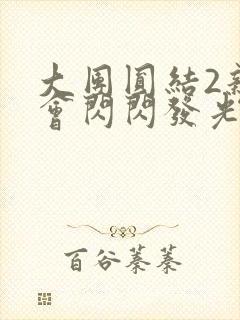 大團圓結2
會閃閃發光
百谷蓁蓁